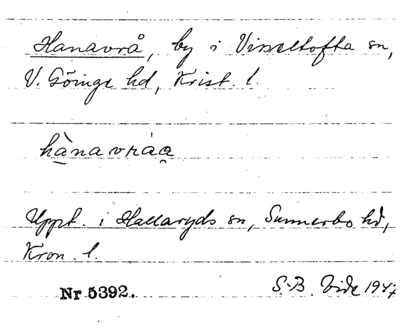 Hanavrå, by i Visseltofta sn,
V. Göinge hd, Krist. l.
hànavráa
Uppt. i Hallaryds sn, Sunnerbo hd,
Kron. l.
Nr 5392. S-B. Vide 1947